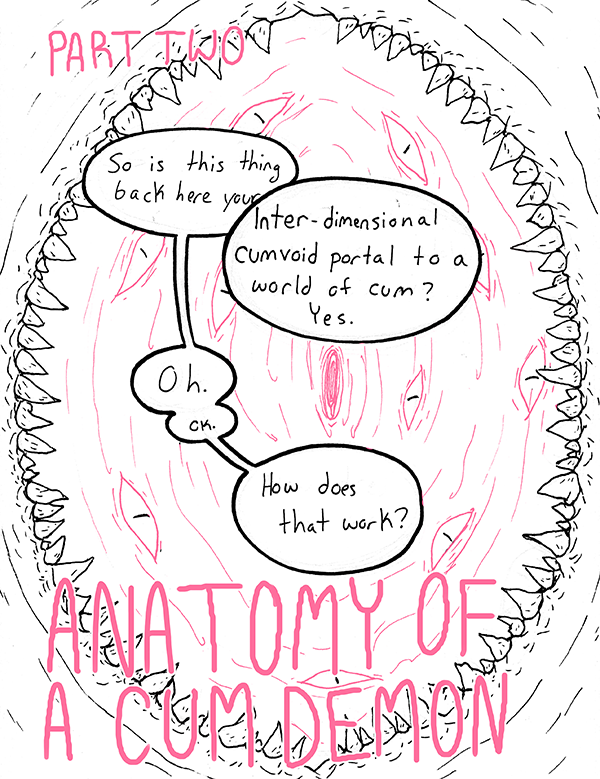 PART TWO
So is this thing
back here your
Inter-dimensional
cumvoid portal to a
world of cum?
Yes.
Oh.
OK.
How does
that work?
ANATOMY OF
A CUM DEMON